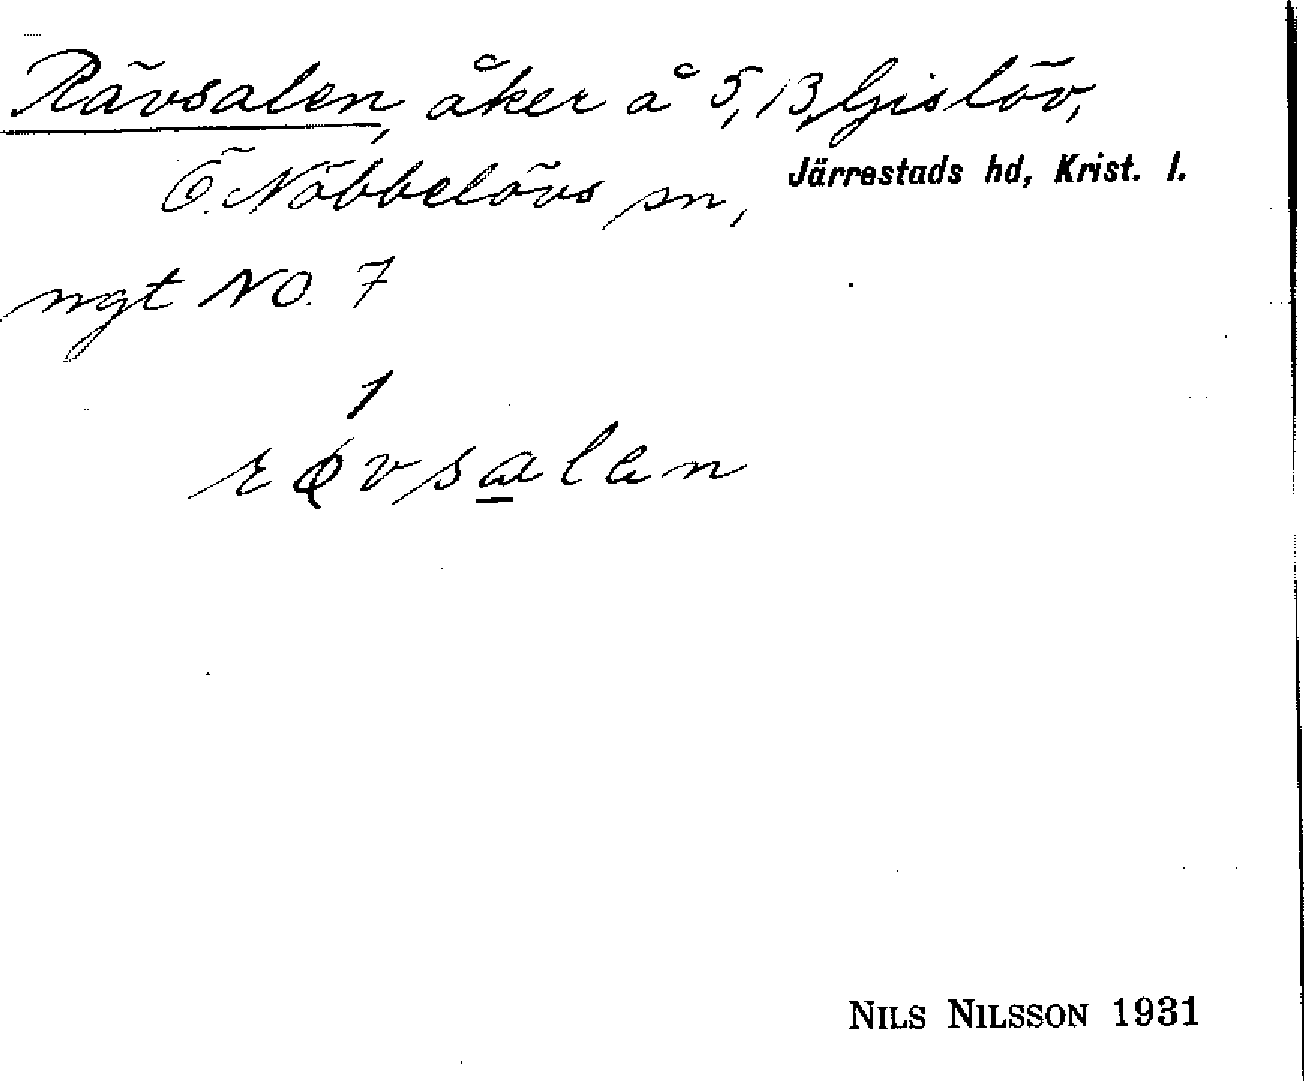 Rävsalen, åker å 5, 13, Gislöv,
Ö. Nöbbelövs sn, Järrestads hd, Krist. l.
ngt NO. 7
1
rǿvsalen
NILS NILSSON 1931